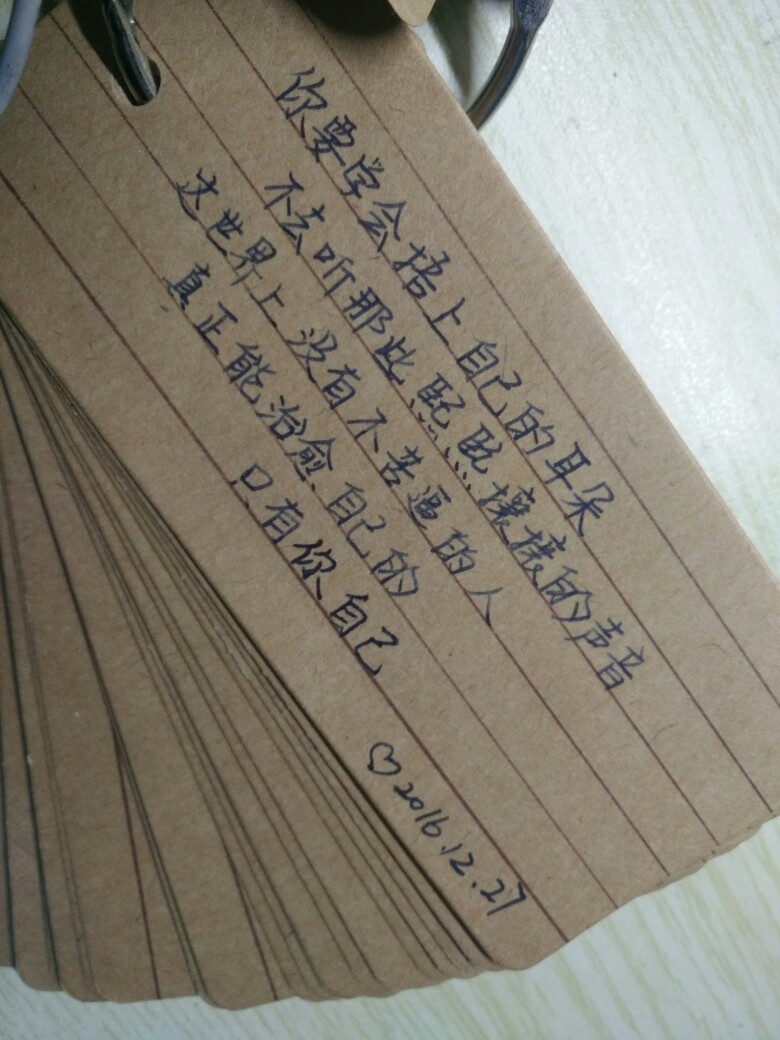 你要学会捂上自己的耳朵
不去听那些熙熙攘攘的声音
这世界上没有不苦逼的人
真正能治愈自己的
只有你自己
♡2016.12.27